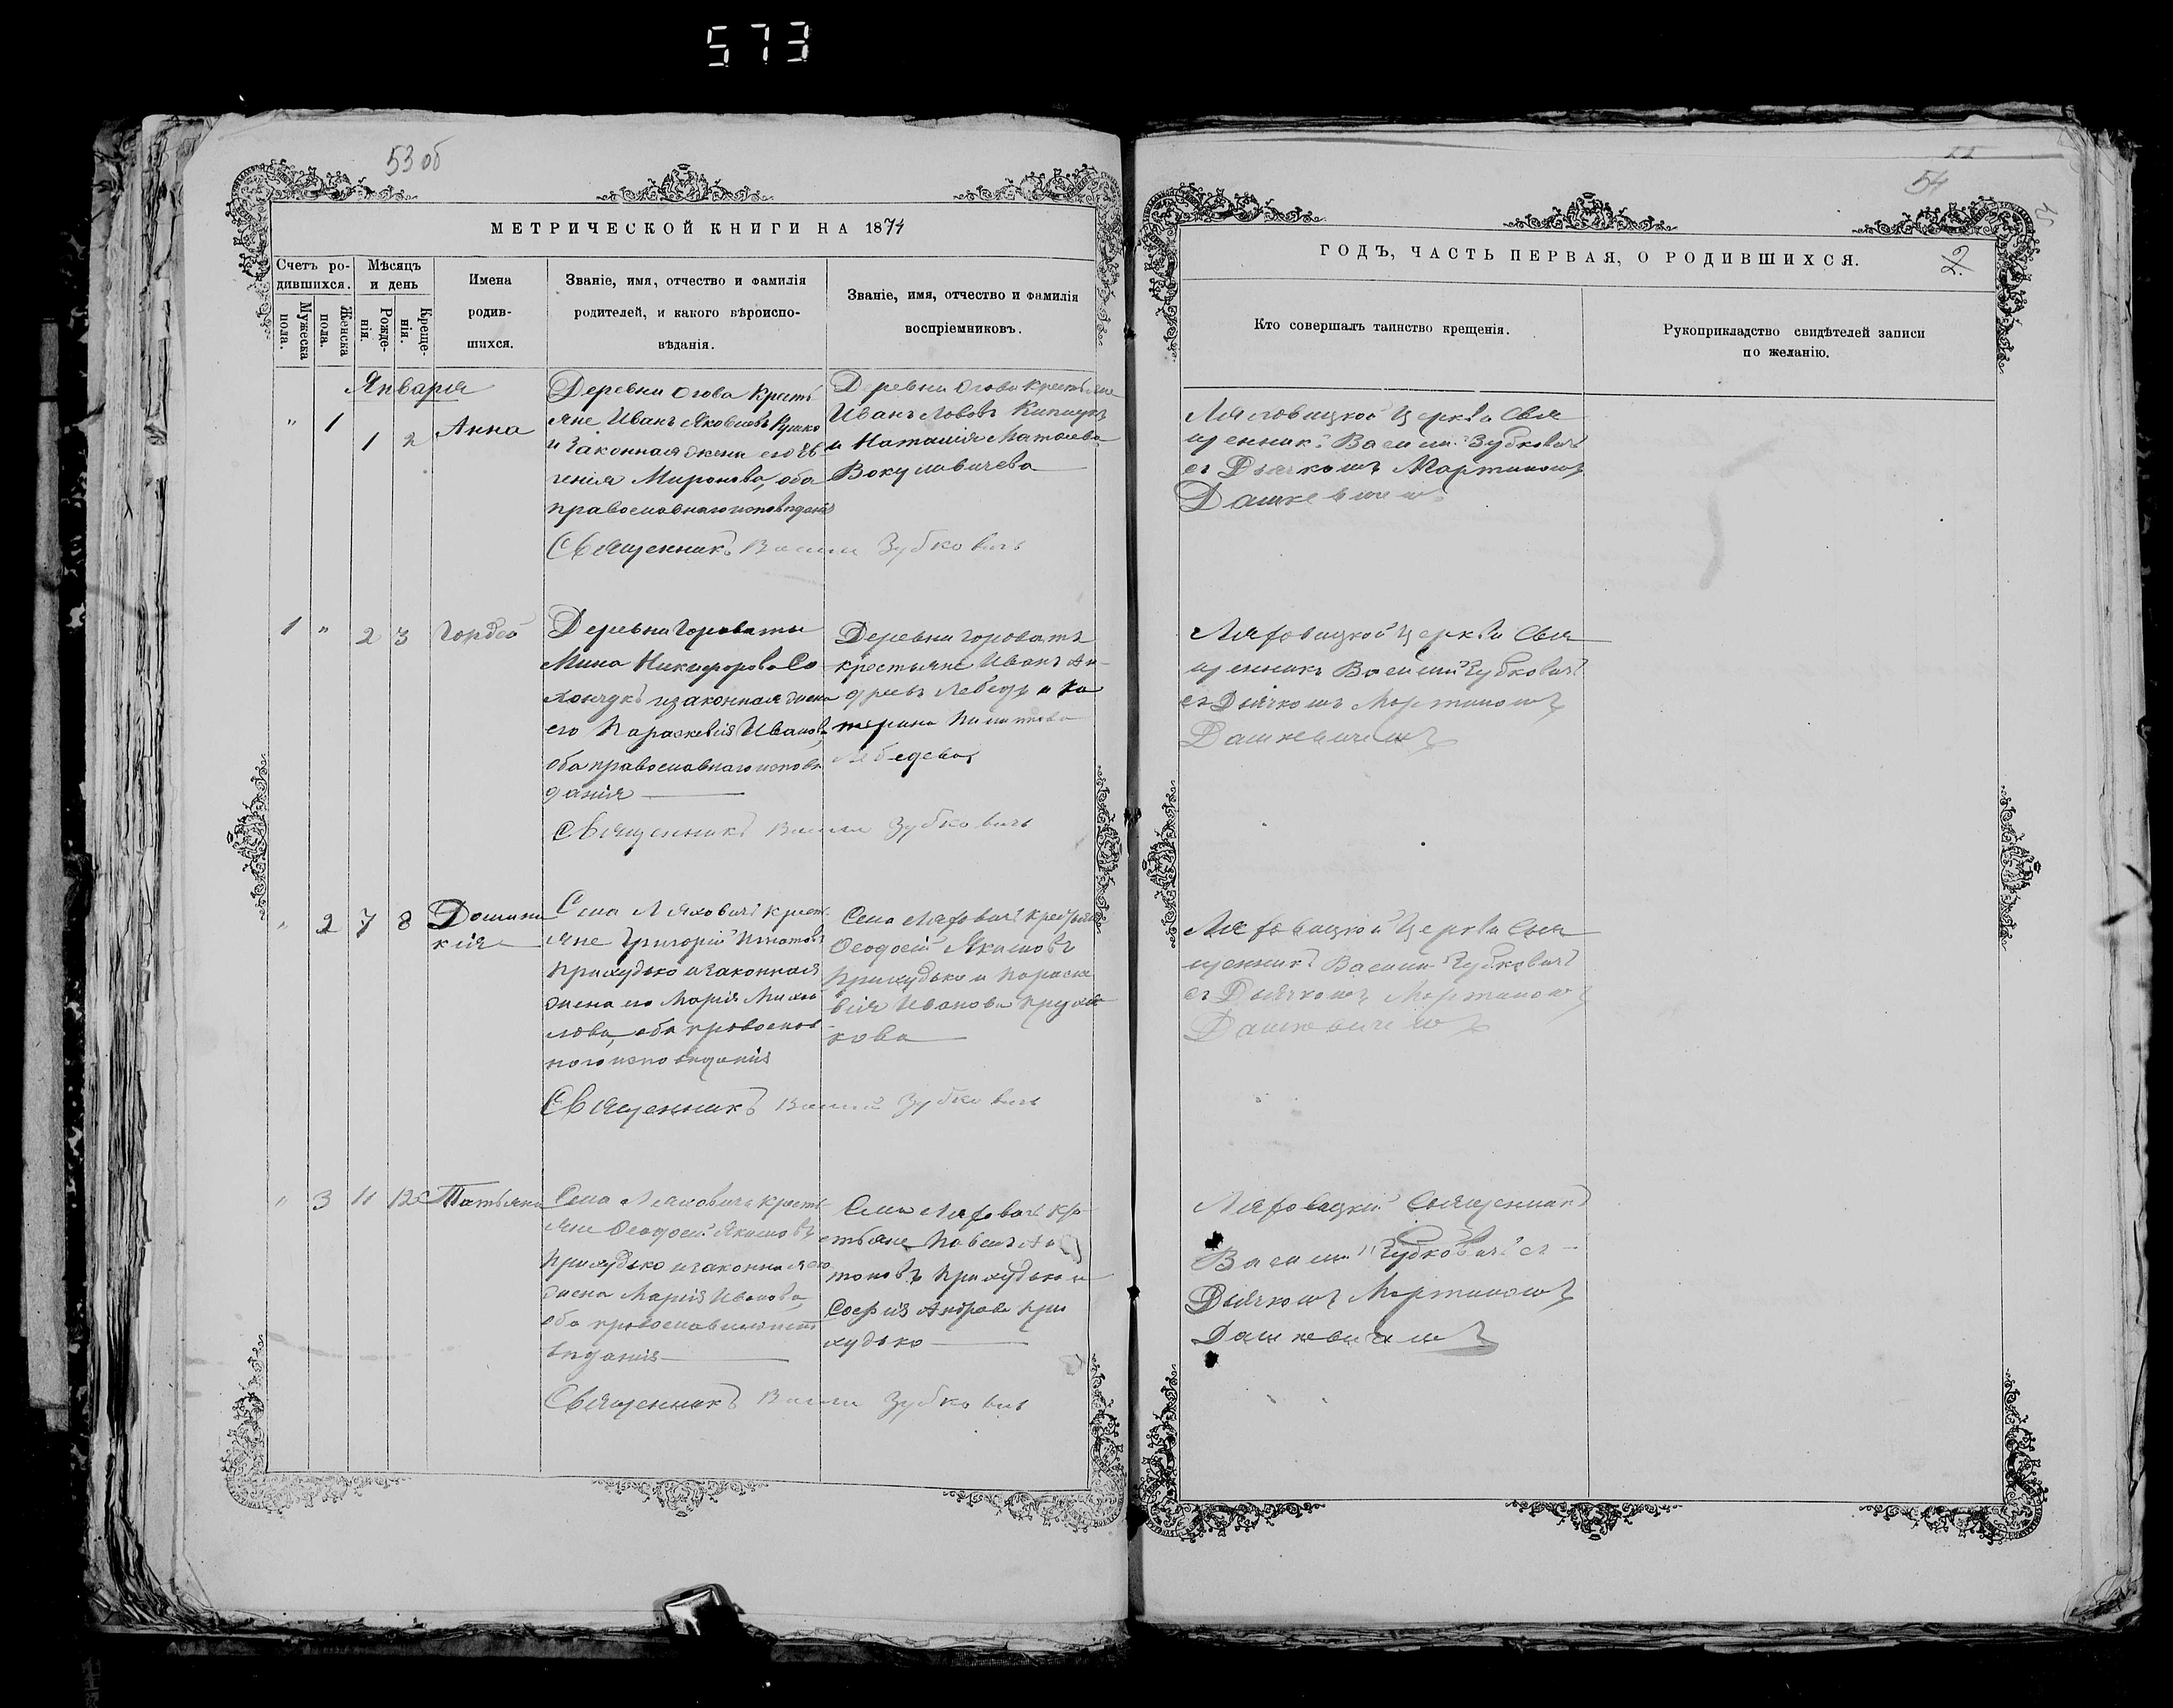 573
53 об
МЕТРИЧЕСКОЙ КНИГИ НА 1874
Счетъ ро-
дившихся.
Мужеска
пола.
Женска
пола.
Мѣсяцъ
и день
Рожде-
нія.
Креще-
нія.
Имена
родив-
шихся.
Званіе, имя, отчество и фамилія
родителей, и какого вѣроиспо-
вѣданія.
Званіе, имя, отчество и фамилія
воспріемниковъ.
Января
" 1 1 2 Анна
Деревни Огова Кресть
яне Иванъ Яковлевъ
и законная жена его Ев
генія Миронова, оба
православнаго исповѣданія
Деревни Огова Крестьяне
Иванъ
и Наталія
Священникъ Василій Зубковичъ
1 " 2 3 Гордей
Деревни Гороваты
Мина Никифоровъ Со
и законная жена
его Параскевія Иванова
оба православнаго исповѣ
данія
Деревни Гороватъ
крестьяне Иванъ Ан-
дреевъ Лебедь и Ка
терина
Лебедева
Священникъ Василій Зубковичъ
" 2 7 8 Домни
кія
Села Ляховичъ Кресть
яне Григорій Игнатовъ
Прихудько и законная
жена его Марія Михаи
лова, оба православ
наго исповѣданія
Села Ляховичъ Крестьяне
Ѳеодосій Якимовъ
Прихудько и Параске
вія Иванова
кова
Священникъ Василій Зубковичъ
" 3 11 12 Татьяна
Села Ляховичъ Кресть
яне Ѳеодосій Якимовъ
Прихудько и законная его
жена Марія Иванова,
оба православнаго испо
вѣданія
Села Ляховичъ Кре
стьяне Павелъ Ан
тоновъ Прихудько и
Софія При
худько
Священникъ Василій Зубковичъ
54
ГОДЪ, ЧАСТЬ ПЕРВАЯ, О РОДИВШИХСЯ.
Кто совершалъ таинство крещенія.
Рукоприкладство свидѣтелей записи
по желанію.
Ляховицкой Церкви Свя
щенникъ Василій Зубковичъ
съ Дьячкомъ Мартиномъ
Дашкевичемъ
Ляховицкой Церкви Свя
щенникъ Василій Зубковичъ
съ Дьячкомъ Мартиномъ
Дашкевичемъ
Ляховицкой Церкви Свя
щенникъ Василій Зубковичъ
съ Дьячкомъ Мартиномъ
Дашкевичемъ
Ляховицкій Священникъ
Василій Зубковичъ съ
Дьячкомъ Мартиномъ
Дашкевичемъ